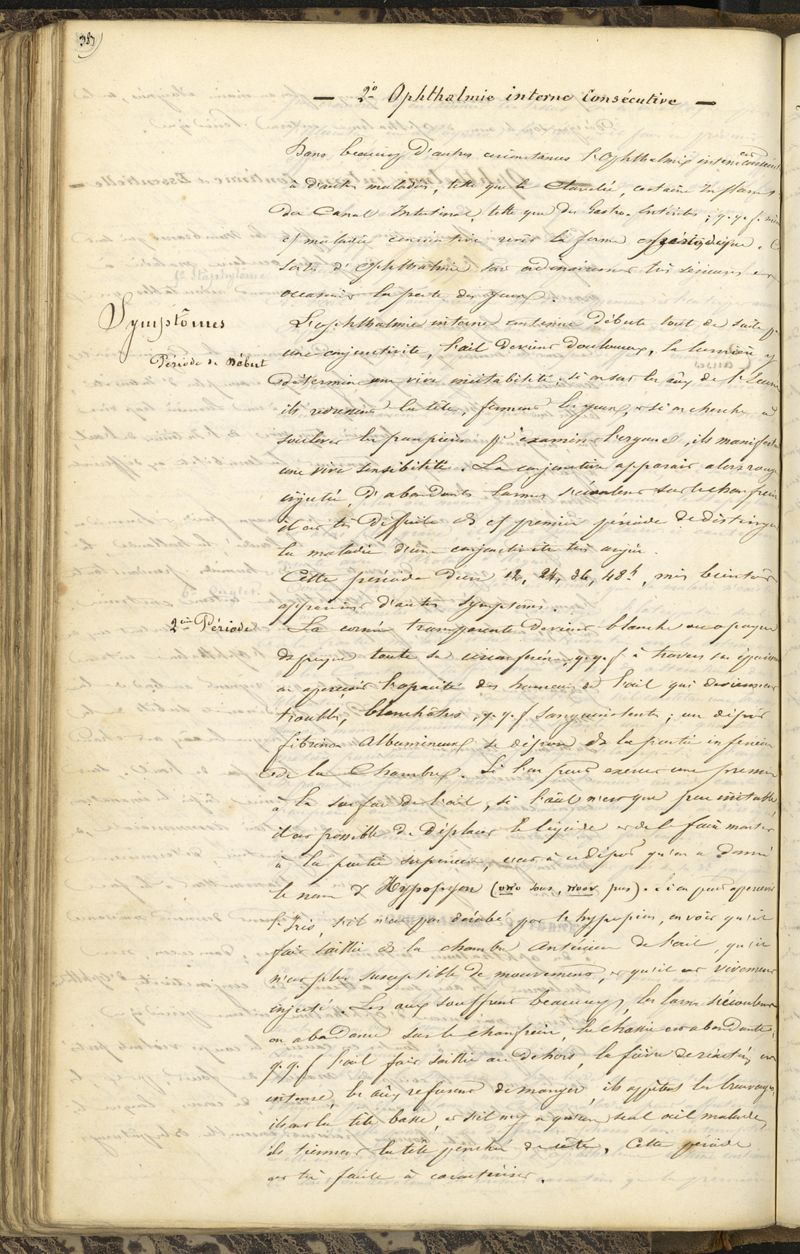 387
— 2° Ophthalmie interne Consécutive —
Dans beaucoup d'autres circonstances l'Ophthalmie interne est consécutive
à d'autres maladies, telle que la Clavelée, certaines Inflammes
du Canal Intestinal, telle que des Gastro-Entérites; q.q.f.
et maladie consécutive revêt la forme périodique.
sorte d'Ophthalmie est ordinairement très sérieuse
occasionne la perte des yeux.
Symptômes
Période de Début
L'ophthalmie interne continue débute tout de suite pr
une conjonctivite, l'œil devient douloureux, la lumière y
cause
détermine une vive irritabilité, si on sort les aux de l'Écurie
ils redressent la tête, ferment les yeux, si on cherche à
soulever les paupières pr examiner l'organe, ils manifestent
une vive sensibilité. La conjonctive apparait alors rouge
injectée, d'abondantes larmes s'écoulent sur le chanfrein
il est très difficile ds cette première période de distinguer
la maladie d'une conjonctivite très aigue.
Cette période dure 12, 24, 36, 48h, mais bientôt
apparaissent d'autres symptomes.
2ème Période
La cornée transparente devient blanche ou opaque
ds presque toute sa circonférence, q.q.f. à travers son épaisseur
on aperçoit l'opacité des humeurs de l'œil qui deviennent
troubles, blanchâtres, q.q.f. sanguinolents; un dépôt
fibrineux Albumineux se dépose ds la partie inférieure
de la Chambre. Si l'on peut exercer une pression
à la surface de l'œil, si l'aâl n'est que peu irritable,
il est possible de déplacer le liquide et de l' faire monter
à la partie supérieure, c'est à ce dépôt qu'on a donné
le nom d' Hypopyon (υπο sous, πυον pus). Si l'on peut apercevoir
l'Iris, s'il n'est pas dérobé par le hypopion, on voit qu'il
fait saillie ds la chambre antérieure de l'œil, qu'il
n'est plus susceptible de mouvement, et qu'il est vivement
injecté. Les aux souffrent beaucoup, les larmes s'écoulent
en abondance sur le chanfrein, la chassie est abondante,
q.q.f. l'œil fait saillie au dehors, la fièvre de réaction est
intense, les aux refusent de manger, ils appètent les breuvages,
ils ont la tête basse, et s'il n'y a qu'un seul œil malade,
ils tiennent la tête penchée de côté. Cette période
est très facile à caractériser.